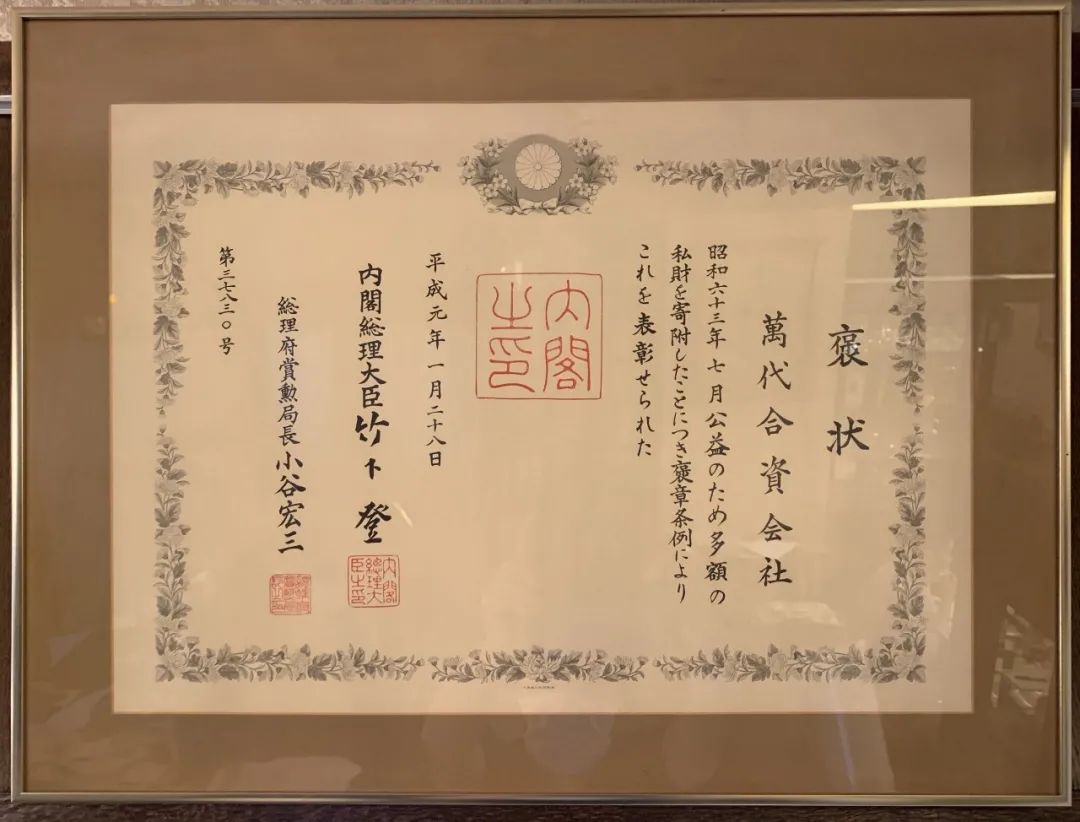 褒状
萬代合資会社
昭和六十三年七月公益のため多額の
私財を寄附したことにつき褒章条例により
これを表彰せられた
内閣之印
平成元年一月二十八日
内閣総理大臣竹下登
内閣総理大臣之印
総理府賞勲局長小谷宏三
第三七八三〇号